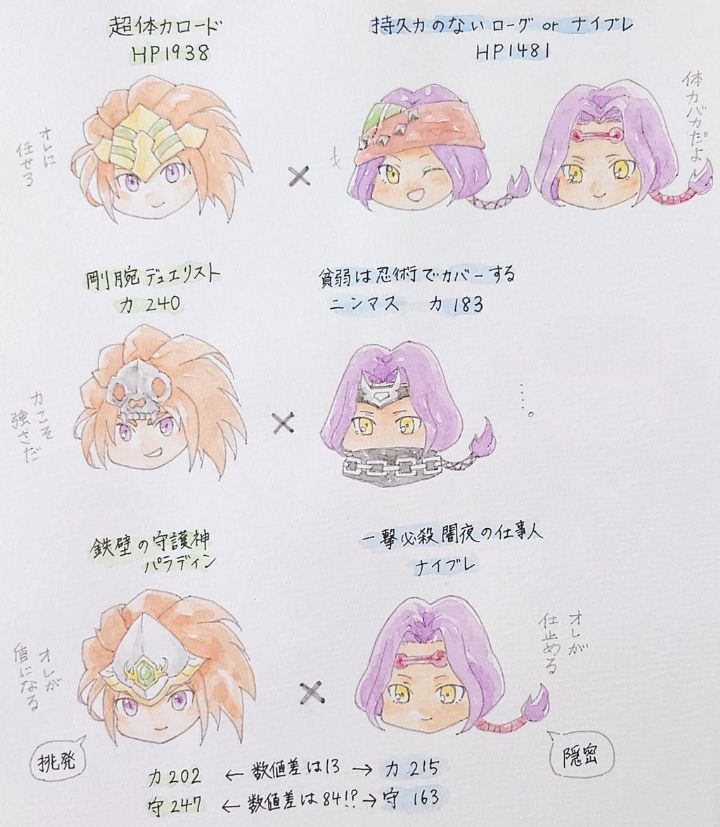 超体力ロード
HP1938
持久力のないローグ or ナイブレ
HP1481
オレに
任せろ
体力バカだよ
剛腕デュエリスト
力240
貧弱は忍術でカバーする
ニンマス 力183
力こそ
強さだ
・・・・。
鉄壁の守護神
パラディン
一撃必殺闇夜の仕事人
ナイブレ
オレが
盾になる
オレが
仕止める
挑発
隠密
力202 ← 数値差は13 → 力215
守247 ← 数値差は84!? → 守163